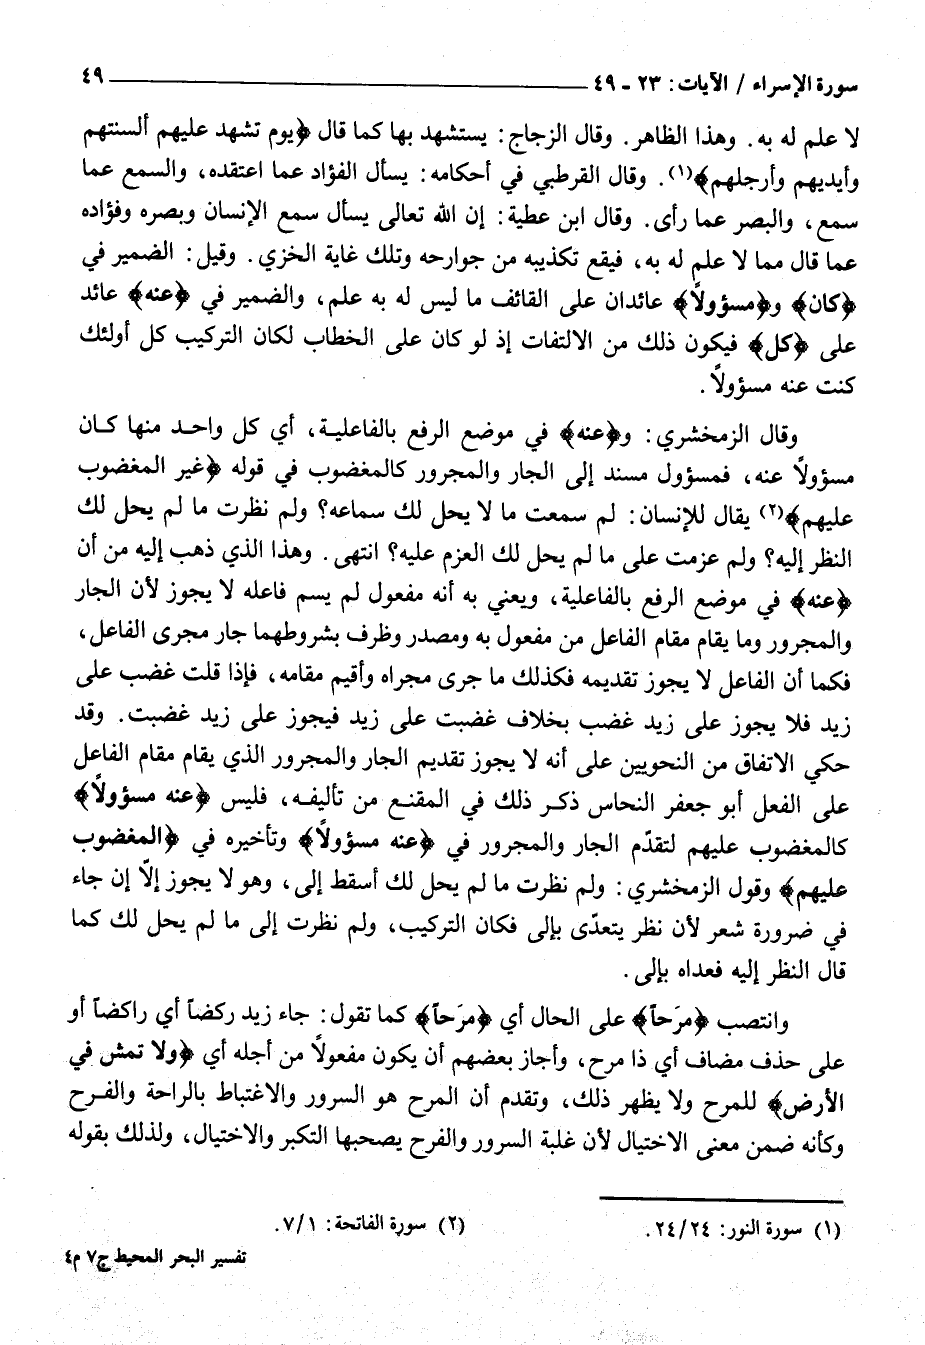 سورة الإسراء / الآيات: ٢٣ - ٤٩ ٤٩
لا علم له به. وهذا الظاهر. وقال الزجاج: يستشهد بها كما قال ﴿يوم تشهد عليهم ألسنتهم
وأيديهم وأرجلهم﴾(١). وقال القرطبي في أحكامه: يسأل الفؤاد عما اعتقده، والسمع عما
سمع، والبصر عما رأى. وقال ابن عطية: إن الله تعالى يسأل سمع الإنسان وبصره وفؤاده
عما قال مما لا علم له به، فيقع تكذيبه من جوارحه وتلك غاية الخزي. وقيل: الضمير في
﴿كان﴾ و﴿مسؤولاً﴾ عائدان على القائف ما ليس له به علم، والضمير في ﴿عنه﴾ عائد
على ﴿كل﴾ فيكون ذلك من الالتفات إذ لو كان على الخطاب لكان التركيب كل أولئك
كنت عنه مسؤولاً.
وقال الزمخشري: و﴿عنه﴾ في موضع الرفع بالفاعلية، أي كل واحد منها كان
مسؤولاً عنه، فمسؤول مسند إلى الجار والمجرور كالمغضوب في قوله ﴿غير المغضوب
عليهم﴾(٢) يقال للإنسان: لم سمعت ما لا يحل لك سماعه؟ ولم نظرت ما لم يحل لك
النظر إليه؟ ولم عزمت على ما لم يحل لك العزم عليه؟ انتهى. وهذا الذي ذهب إليه من أن
﴿عنه﴾ في موضع الرفع بالفاعلية، ويعني به أنه مفعول لم يسم فاعله لا يجوز لأن الجار
والمجرور وما يقام مقام الفاعل من مفعول به ومصدر وظرف بشروطهما جار مجرى الفاعل،
فكما أن الفاعل لا يجوز تقديمه فكذلك ما جرى مجراه وأقيم مقامه، فإذا قلت غضب على
زيد فلا يجوز على زيد غضب بخلاف غضبت على زيد فيجوز على زيد غضبت. وقد
حكي الاتفاق من النحويين على أنه لا يجوز تقديم الجار والمجرور الذي يقام مقام الفاعل
على الفعل أبو جعفر النحاس ذكر ذلك في المقنع من تأليفه، فليس ﴿عنه مسؤولاً﴾
كالمغضوب عليهم لتقدّم الجار والمجرور في ﴿عنه مسؤولاً﴾ وتأخيره في ﴿المغضوب
عليهم﴾ وقول الزمخشري: ولم نظرت ما لم يحل لك أسقط إلى، وهو لا يجوز إلاّ إن جاء
في ضرورة شعر لأن نظر يتعدّى بإلى فكان التركيب، ولم نظرت إلى ما لم يحل لك كما
قال النظر إليه فعداه بإلى.
وانتصب ﴿مرَحاً﴾ على الحال أي ﴿مرَحاً﴾ كما تقول: جاء زيد ركضاً أي راكضاً أو
على حذف مضاف أي ذا مرح، وأجاز بعضهم أن يكون مفعولاً من أجله أي ﴿ولا تمش في
الأرض﴾ للمرح ولا يظهر ذلك، وتقدم أن المرح هو السرور والاغتباط بالراحة والفرح
وكأنه ضمن معنى الاختيال لأن غلبة السرور والفرح يصحبها التكبر والاختيال، ولذلك بقوله
(١) سورة النور: ٢٤/٢٤. (٢) سورة الفاتحة: ٧/١.
تفسير البحر المحيط ج٧ م٤